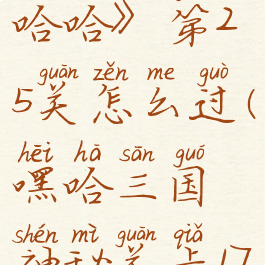 哈哈》 第2
guān zěn me guò
5关怎么过(
hēi hā sān guó
嘿哈三国
shén mì guān qiǎ